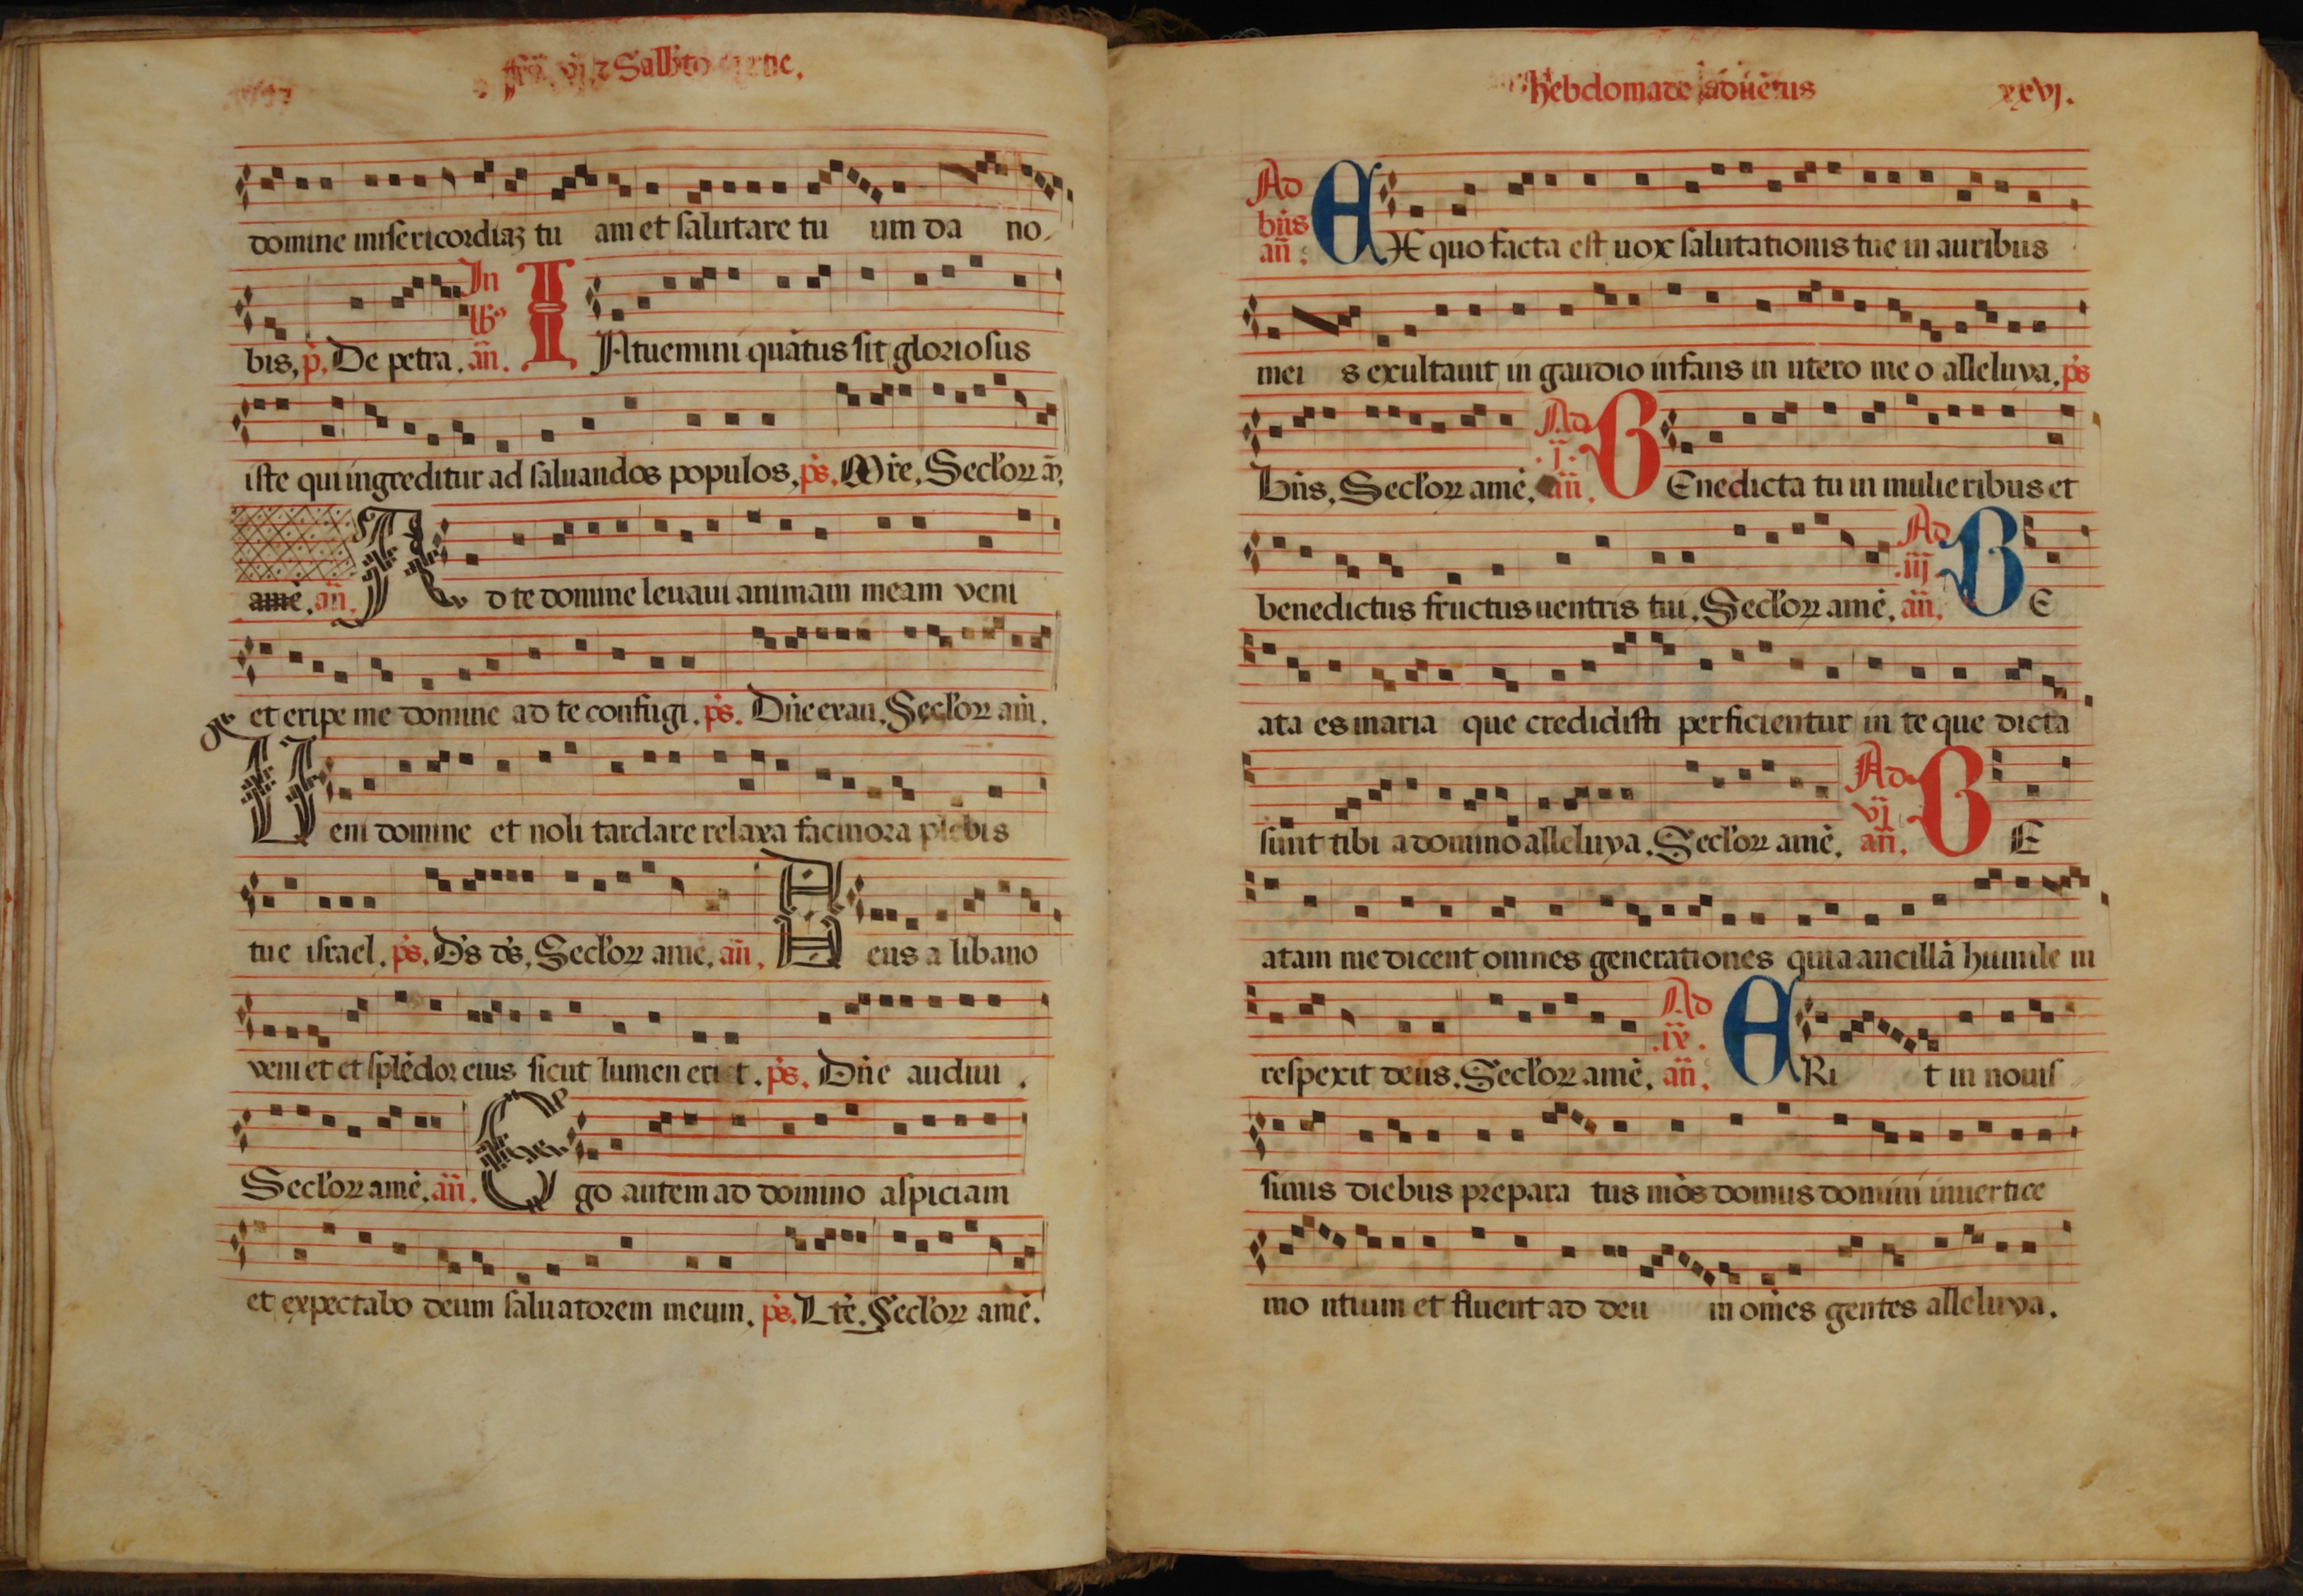 frã. vj. ⁊ Sabb̃to
domine misericordiaꝫ tu am et salutare tu um da no
In
lb᷒
bis, p̃. De petra. añ. INtuemini quãtus sit gloriosus
iste qui ingreditur ad saluandos populos, ps̃. Mr̃e, Secl'oꝝ ã,
amẽ. añ. Ad te domine leuaui animam meam veni
et eripe me domine ad te confugi. ps̃. Dñe exau. Secl'oꝝ am̃.
Veni domine et noli tardare relaxa facinora plebis
tue israel. ps̃. Ds̃ ds̃, Secl'oꝝ ame, añ. Deus a libano
veniet et splẽdor eius sicut lumen erit. ps̃. Dñe audiui.
Secl'oꝝ amẽ, añ. Ego autem ad domino aspiciam
et expectabo deum saluatorem meum, ps̃. Ltẽ. Secl'oꝝ amẽ.
Hebdomade aduẽtus xxvj.
Ad
bñs
añ. EX quo facta est uox salutationis tue in auribus
mei s exultauit in gaudio infans in utero me o alleluya, ps̃
Bñs, Secl'oꝝ amẽ, Ad .j. añ. BEnedicta tu in mulieribus et
benedictus fructus uentris tui. Secl'oꝝ amẽ, Ad .iij. añ. BE
ata es maria que credidisti perficientur in te que dicta
sunt tibi a domino alleluya. Secl'oꝝ amẽ, Ad vj añ. BE
atam me dicent omnes generationes quia ancillã humile m
respexit deus. Secl'oꝝ amẽ, Ad .ix. añ. ERi t in nouis
simis diebus prepara tus mõs domus domini inuertice
mo ntium et fluent ad deu m om̃es gentes alleluya.